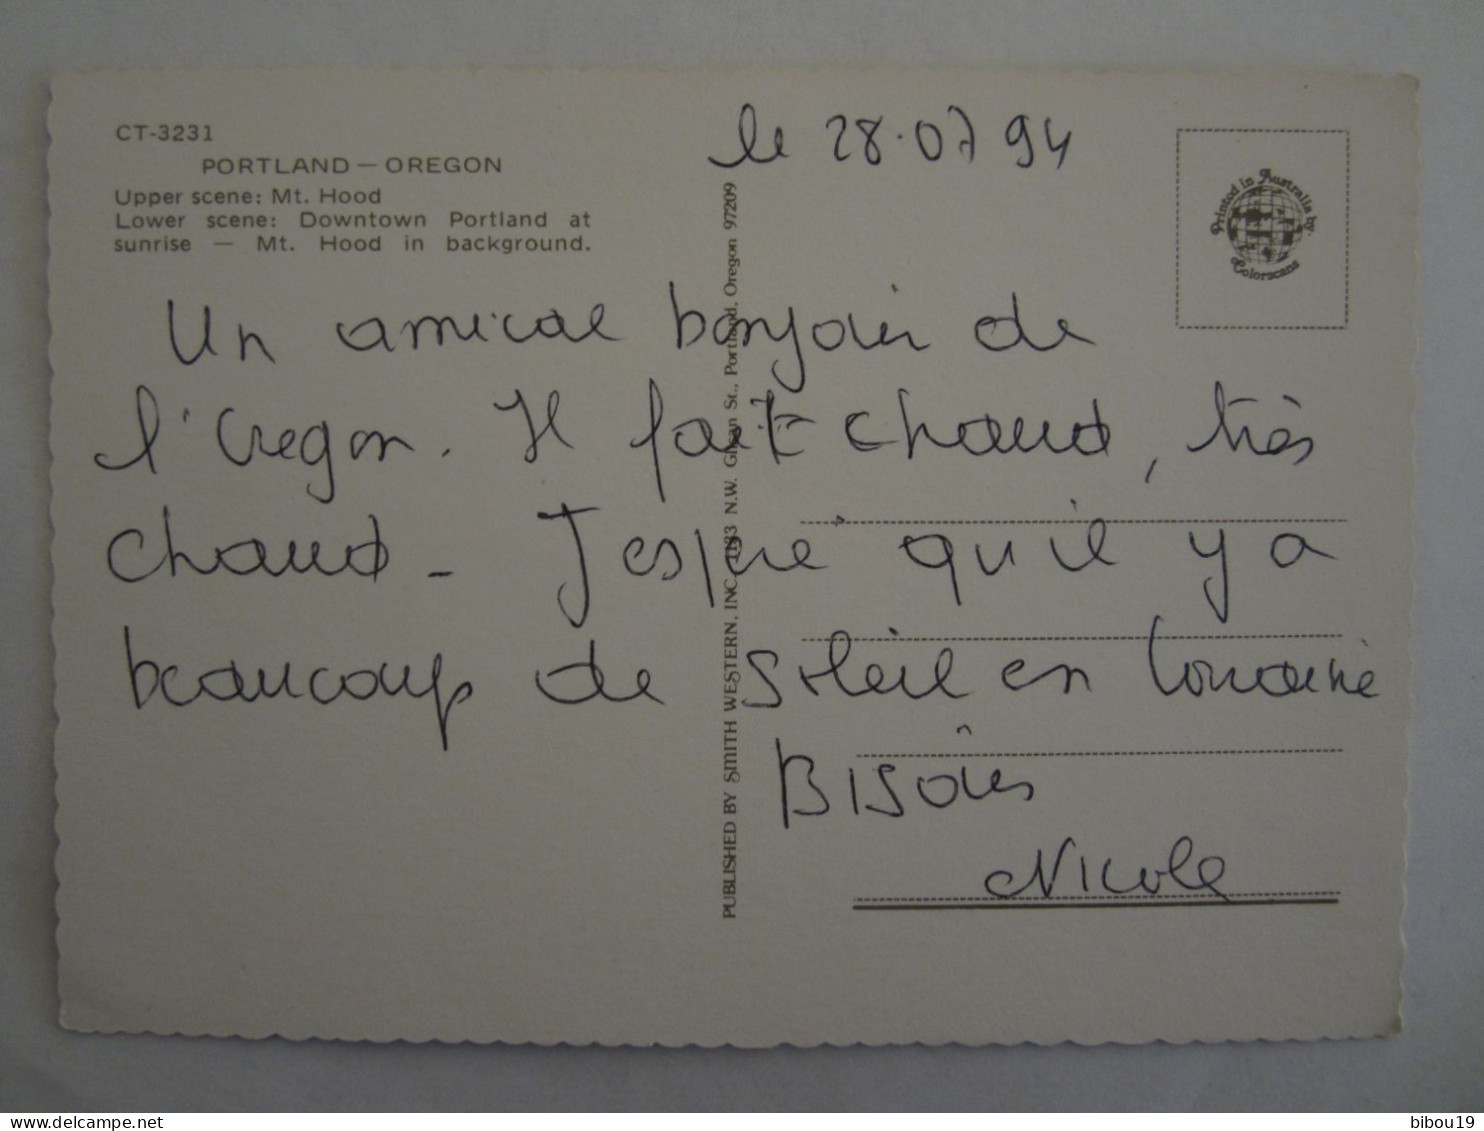 CT-3231
PORTLAND — OREGON
Upper scene: Mt. Hood
Lower scene: Downtown Portland at
sunrise — Mt. Hood in background.
le 28.07 94
Printed in Australia by:
Colorscans
PUBLISHED BY SMITH WESTERN, INC., 1133 N.W. Glisan St., Portland, Oregon 97209
Un amical bonjour de
l'Oregon. Il fait chaud, très
chaud - J'espère qu'il y a
beaucoup de soleil en Lorraine
Bisous
Nicole
delcampe.net
bibou19